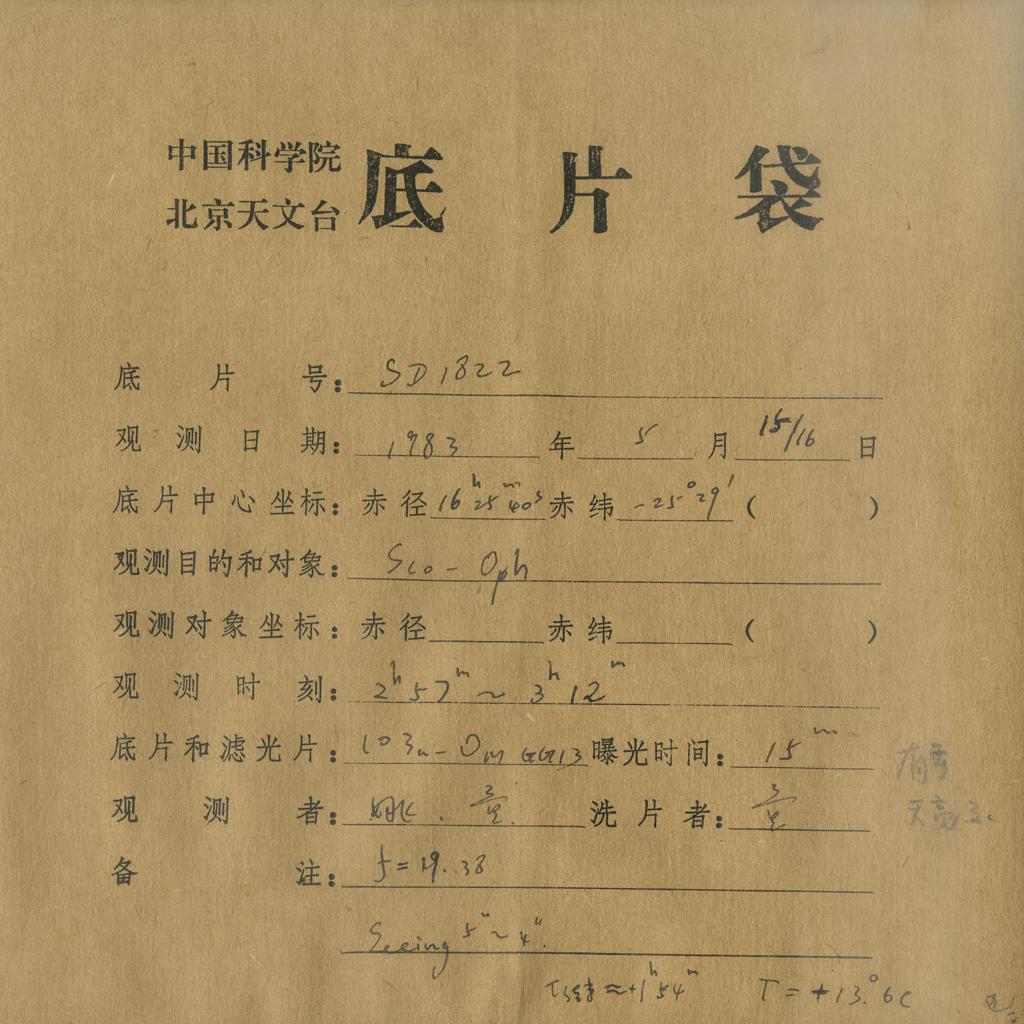 中国科学院
北京天文台
底片袋
底片号: SD1822
观测日期: 1983年5月15/16日
底片中心坐标: 赤径16h25m40s赤纬-25°29′( )
观测目的和对象: Sco-Oph
观测对象坐标: 赤径 赤纬 ( )
观测时刻: 2h57m~3h12m
底片和滤光片: 103a-Om GG13 曝光时间: 15m
观测者: 姚. 洗片者:
备注: f=19.38
Seeing 5″~4″.
≈+1h54m T=+13.°6C